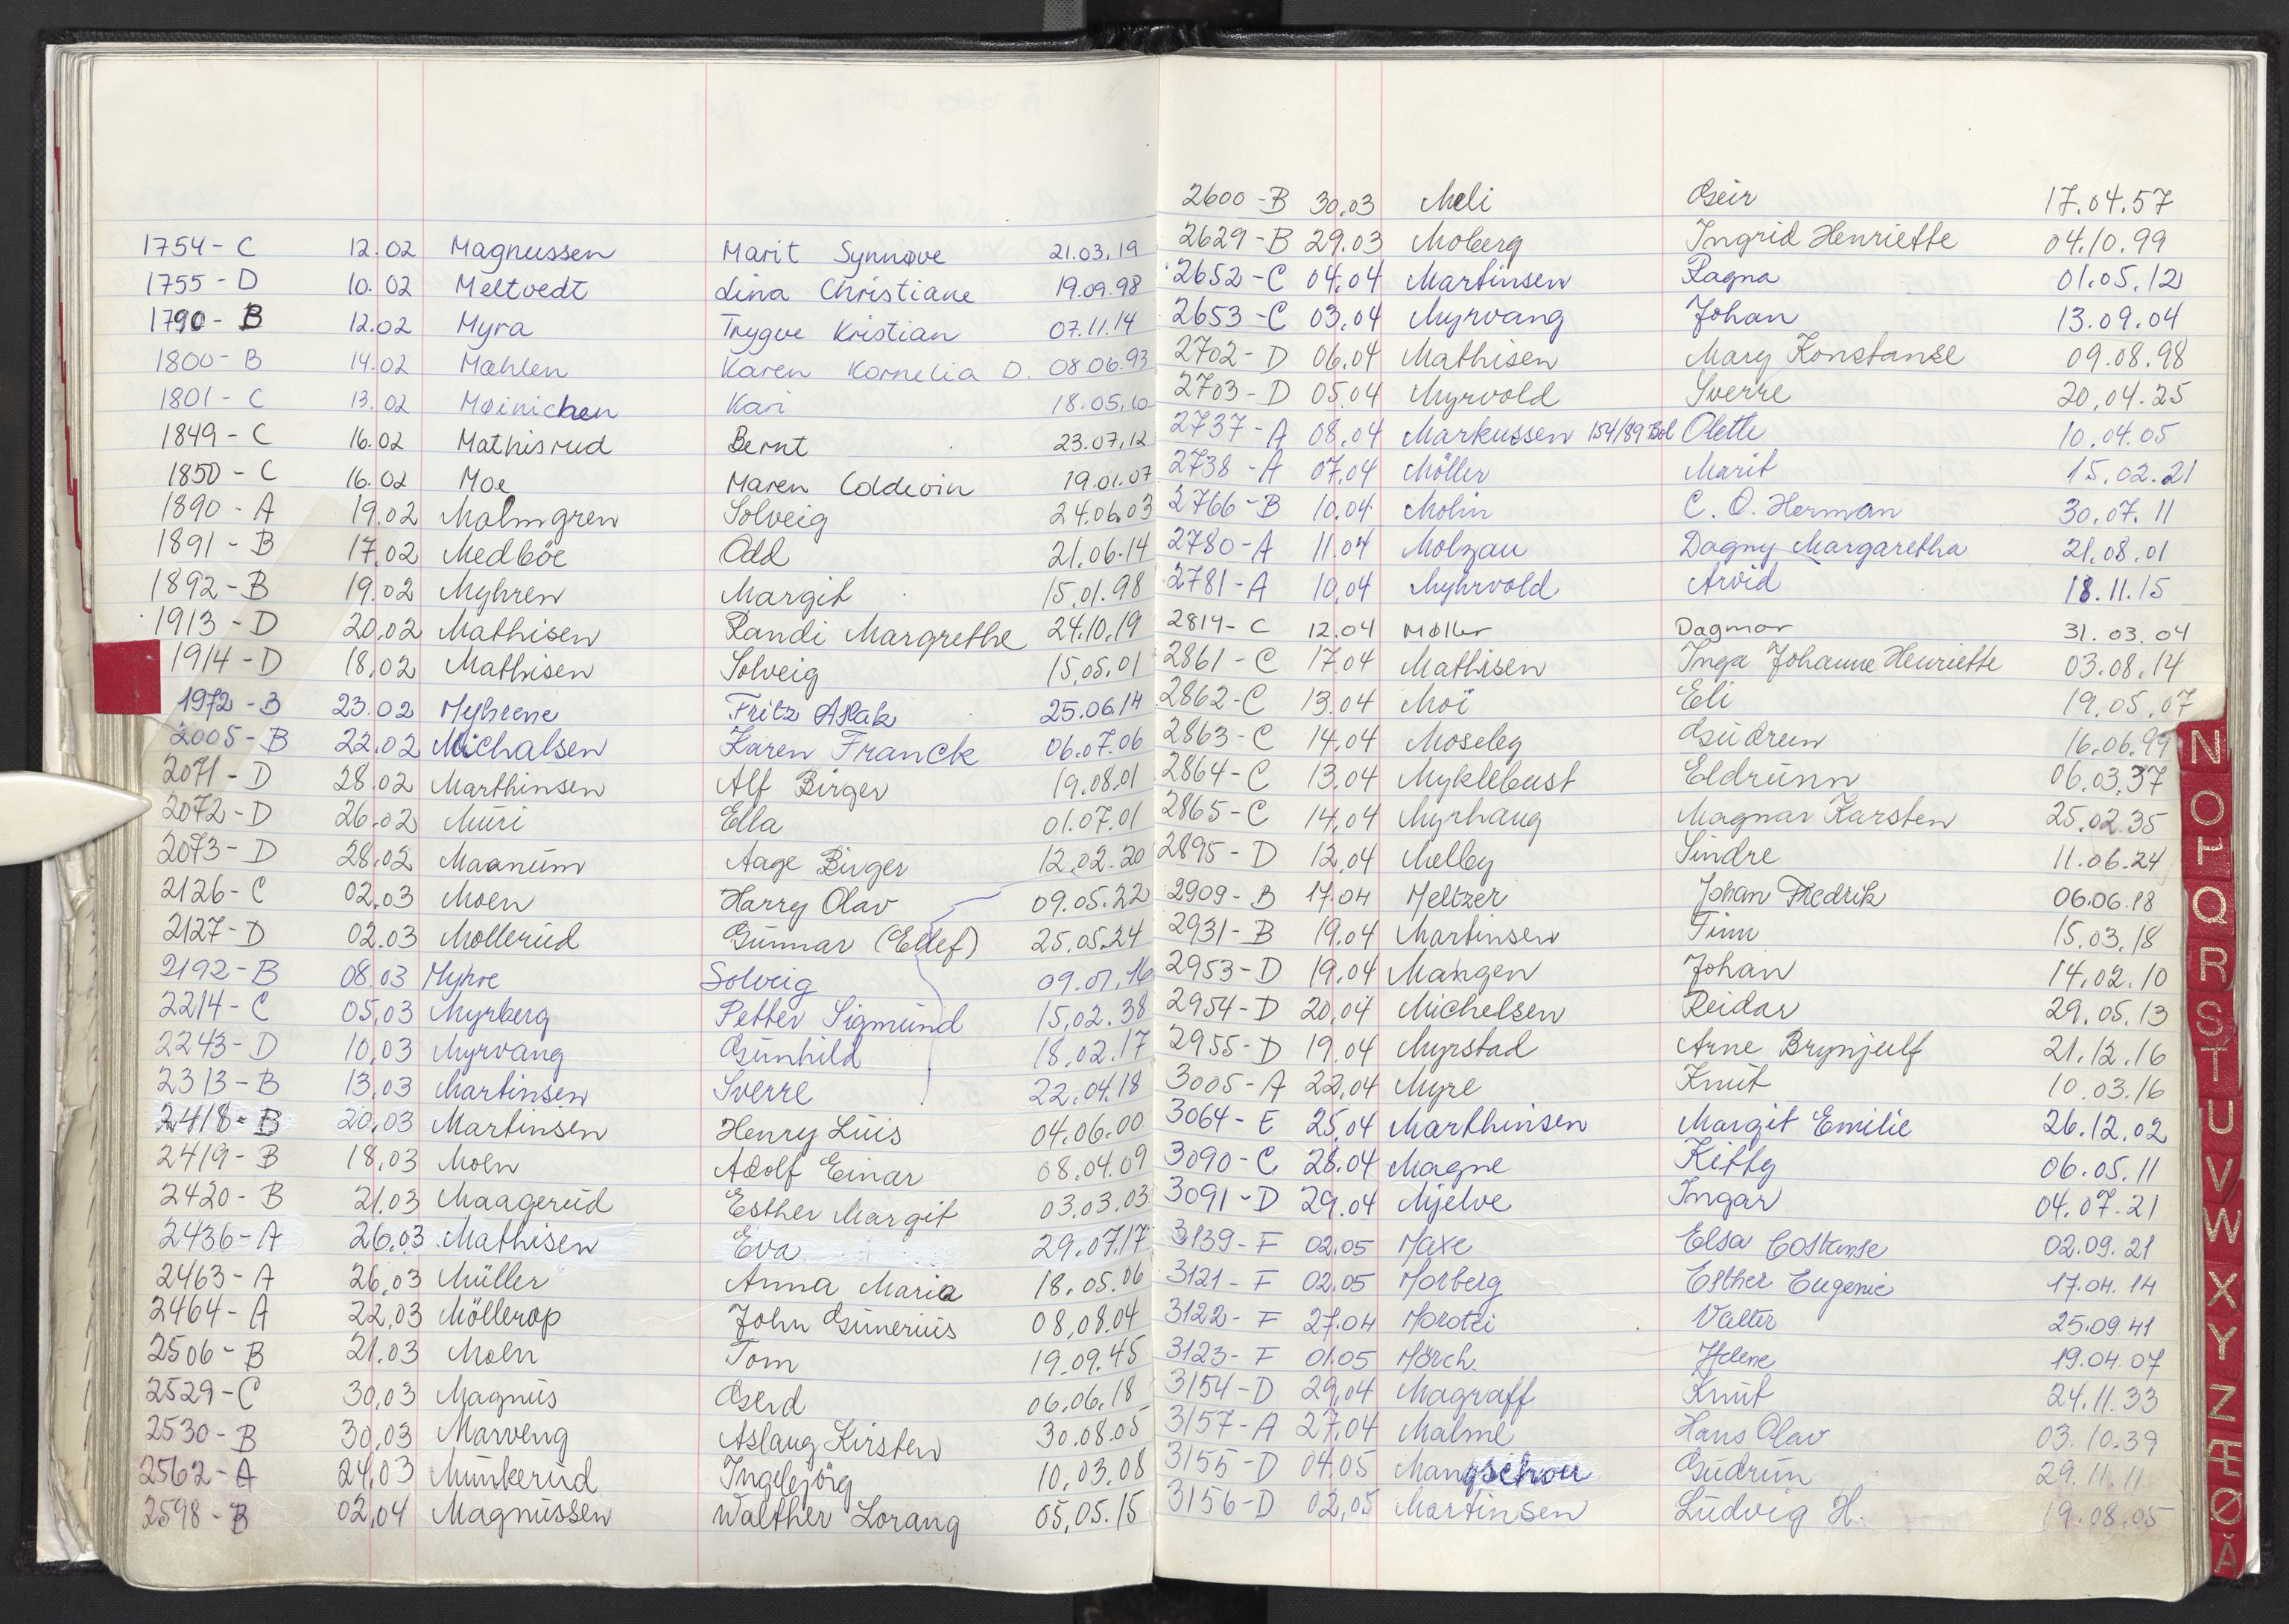 1754 - C 12.02 Magnussen Marit Synnøve 21.03.19
1755 - D 10.02 Meltvedt Lina Christiane 19.09.98
1790 - B 12.02 Myra Trygve Kristian 07.11.14
1800 - B 14.02 Mæhlen Karen Kornelia D. 08.06.93
1801 - C 13.02 Meinichen Kari 18.05.10
1849 - C 16.02 Mathisrud Bernt 23.07.12
1850 - C 16.02 Moe Maren Coldevin 19.01.07
1890 - A 19.02 Malmgren Solveig 24.06.03
1891 - B 17.02 Medböe Odd 21.06.14
1892 - B 19.02 Myhren Margit 15.01.98
1913 - D 20.02 Mathisen Randi Margrethe 24.10.19
1914 - D 18.02 Mathisen Solveig 15.05.01
1972 - B 23.02 Myhrene Fritz Aslak 25.06.14
2005 - B 22.02 Michalsen Karen Franck 06.07.06
2071 - D 28.02 Marthinsen Alf Birger 19.08.01
2072 - D 26.02 Muri Ella 01.07.01
2073 - D 28.02 Maanum Aage Birger 12.02.20
2126 - C 02.03 Moen Harry Olav 09.05.22
2127 - D 02.03 Mollerud Gunnar (Ellef) 25.05.24
2192 - B 08.03 Myhre Solveig 09.01.16
2214 - C 05.03 Myrberg Petter Sigmund 15.02.38
2243 - D 10.03 Myrvang Gunhild 18.02.17
2313 - B 13.03 Martinsen Sverre 22.04.18
2418 - B 20.03 Martinsen Henry Luis 04.06.00
2419 - B 18.03 Moen Adolf Einar 08.04.09
2420 - B 21.03 Maagerud Esther Margit 03.03.03
2436 - A 26.03 Mathisen Eva 29.07.17
2463 - A 26.03 Müller Anna Maria 18.05.06
2464 - A 22.03 Möllerop John Gunerius 08.08.04
2506 - B 21.03 Moen Tom 19.09.45
2529 - C 30.03 Magnus Gerd 06.06.18
2530 - B 30.03 Marveng Aslaug Kirsten 30.08.05
2562 - A 24.03 Munkerud Ingebjörg 10.03.08
2598 - B 02.04 Magnussen Walther Lorang 05.05.15
2600 - B 30.03 Meli Geir 17.04.57
2629 - B 29.03 Moberg Ingrid Henriette 04.10.99
2652 - C 04.04 Martinsen Ragna 01.05.12
2653 - C 03.04 Myrvang Johan 13.09.04
2702 - D 06.04 Mathisen Mary Konstanse 09.08.98
2703 - D 05.04 Myrvold Sverre 20.04.25
2737 - A 08.04 Markussen 154/89 Bol Olette 10.04.05
2738 - A 07.04 Möller Marit 15.02.21
2766 - B 10.04 Molin C. O. Herman 30.07.11
2780 - A 11.04 Molzau Dagny Margaretha 21.08.01
2781 - A 10.04 Myhrvold Arvid 18.11.15
2814 - C 12.04 Møller Dagmar 31.03.04
2861 - C 17.04 Mathisen Inga Johanne Henriette 03.08.14
2862 - C 13.04 Moi Eli 19.05.07
2863 - C 14.04 Moseley Gudrun 16.06.99
2864 - C 13.04 Myklebust Eldrunn 06.03.37
2865 - C 14.04 Myrhaug Magnar Karsten 25.02.35
2895 - D 12.04 Melby Sindre 11.06.24
2909 - B 17.04 Meltzer Johan Fredrik 06.06.18
2931 - B 19.04 Martinsen Finn 15.03.18
2953 - D 19.04 Mangen Johan 14.02.10
2954 - D 20.04 Michelsen Reidar 29.05.13
2955 - D 19.04 Myrstad Arne Brynjulf 21.12.16
3005 - A 22.04 Myre Knut 10.03.16
3064 - E 25.04 Marthinsen Margit Emilie 26.12.02
3090 - C 28.04 Magne Kitty 06.05.11
3091 - D 29.04 Mjelve Ingar 04.07.21
3139 - F 02.05 Maxe Elsa Costanse 02.09.21
3121 - F 02.05 Morberg Esther Eugenie 17.04.14
3122 - F 27.04 Morotti Valter 25.09.41
3123 - F 01.05 Mörch Helene 19.04.07
3154 - D 29.04 Magraff Knut 24.11.33
3157 - A 27.04 Malme Hans Olav 03.10.39
3155 - D 04.05 Mangschou Gudrun 29.11.11
3156 - D 02.05 Martinsen Ludvig H. 19.08.05
N
O
P
Q
R
S
T
U
V
W
X
Y
Z
Æ
Ø
Å